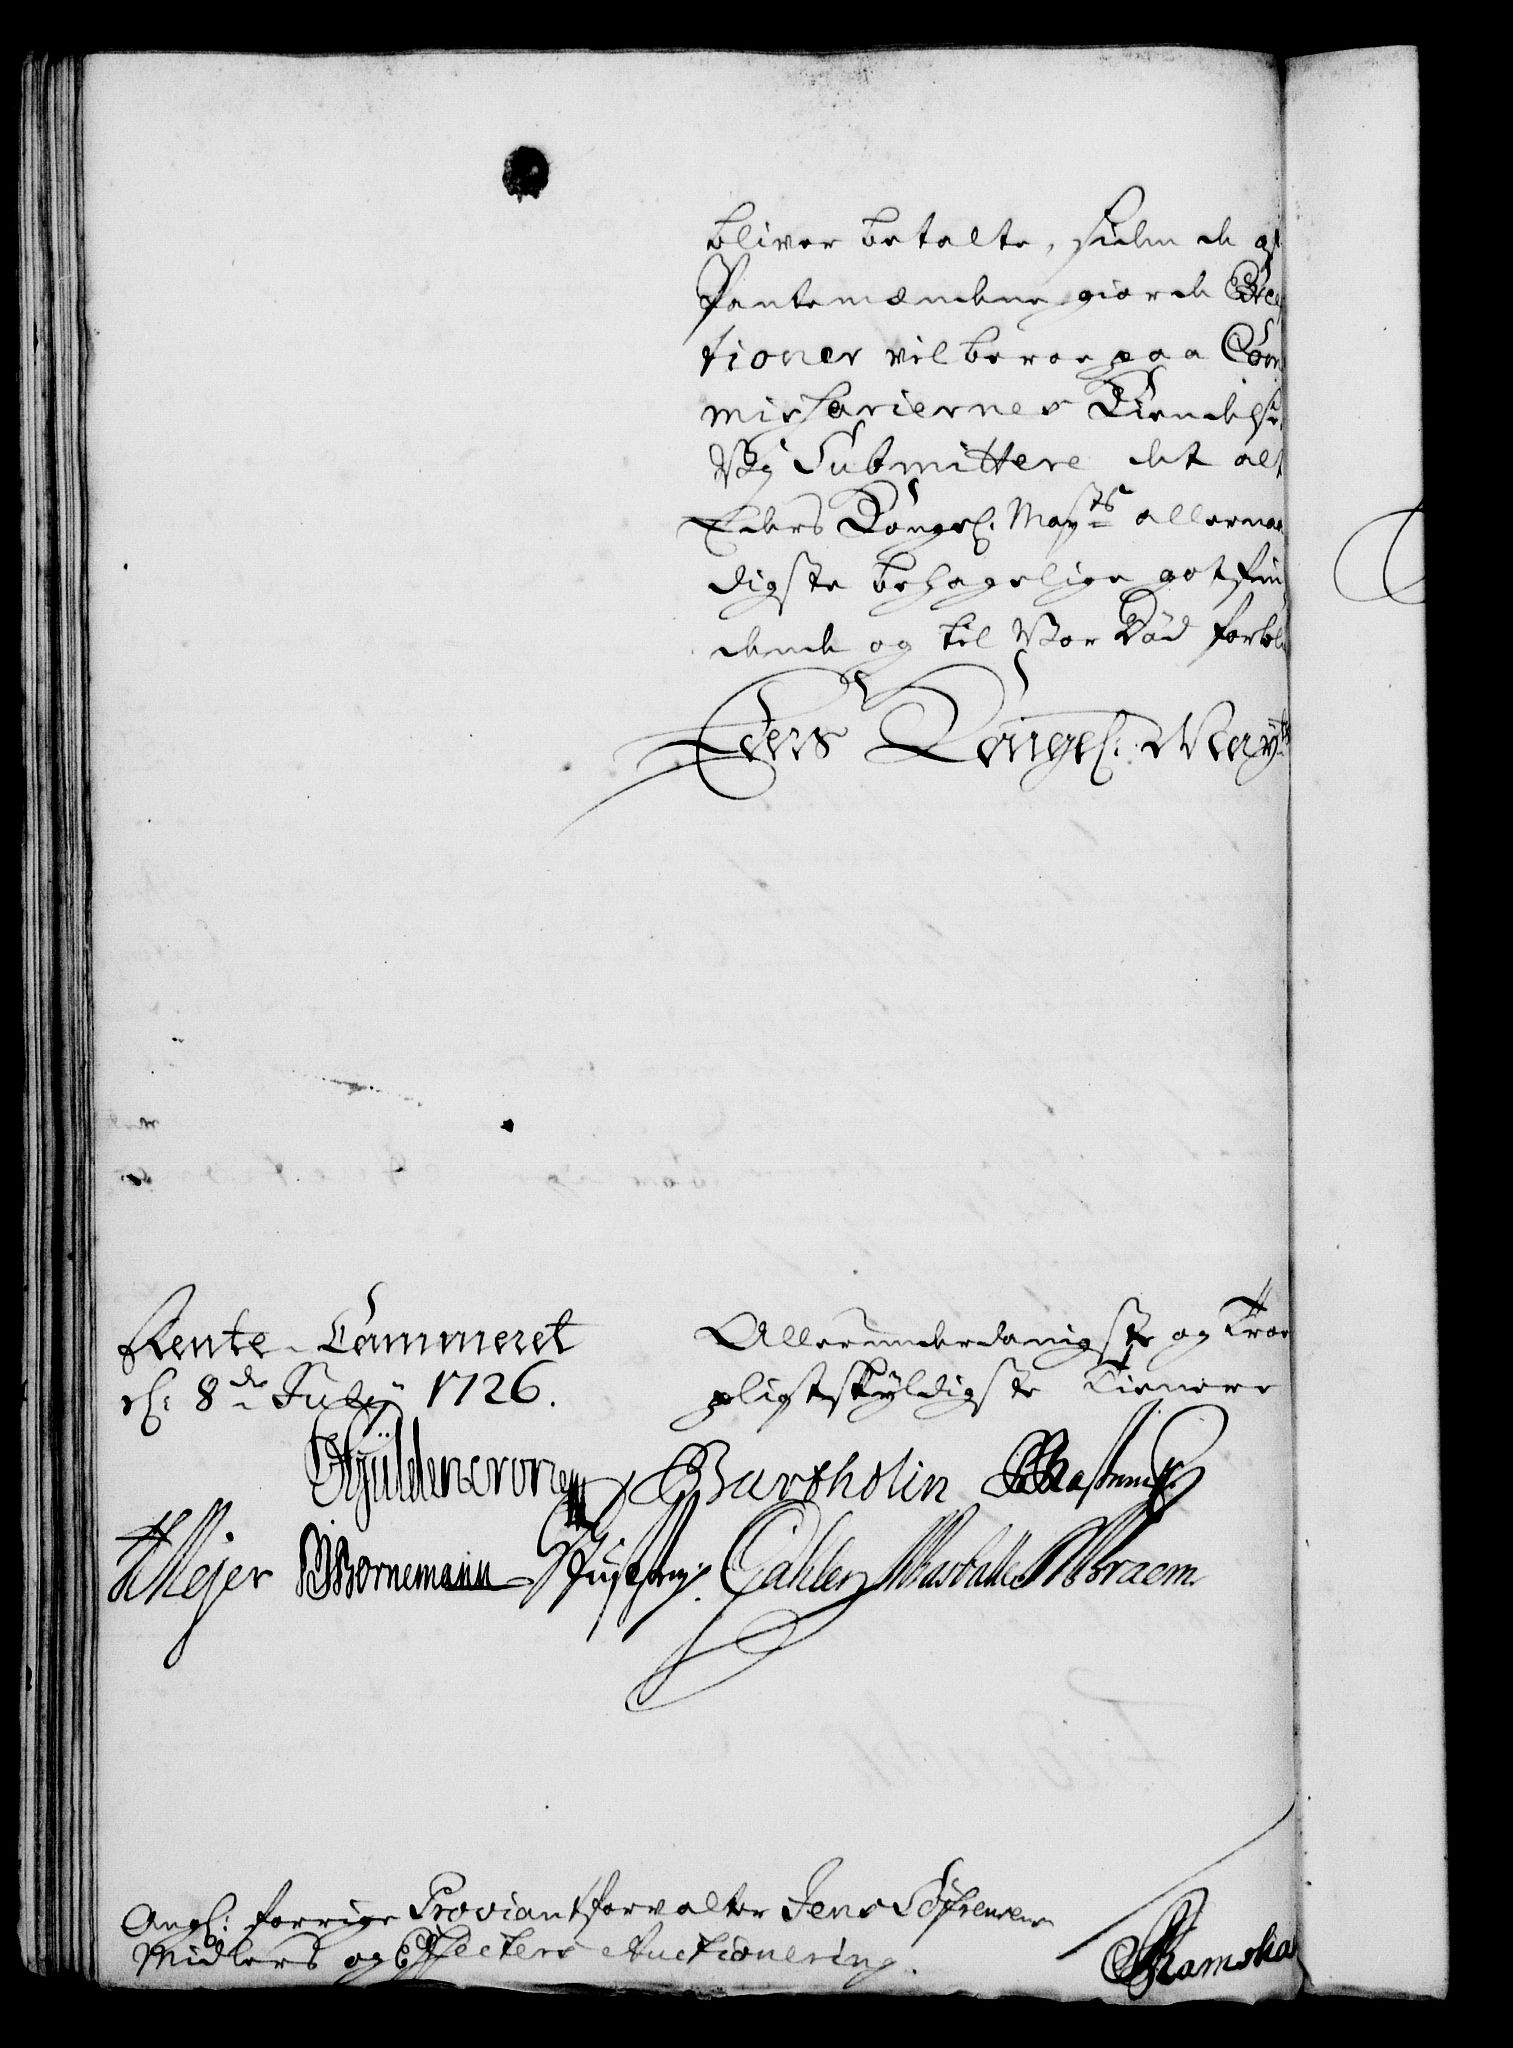 bliver betalte, siden de af
Pantemændene giorde Exce
tioner vil beroe paa Com
missariernes Kiendelse.
Vij Submittere det alt
Eders Kongel: Mayts allernaa
digste behagelige gotfin
dende og til Vor Død forbli
Eders Kongel: Mayts
Rente-Cammeret
d: 8de July 1726.
Allerunderdanigste og Troe
pligtskyldigste Tienere
Gyldencrone Bartholin
Mejer Bornemann Braem.
Angl: forrige Proviantforvalter Jens Søfrensens
Midlers og Effecters Auctionering.
Ramshar